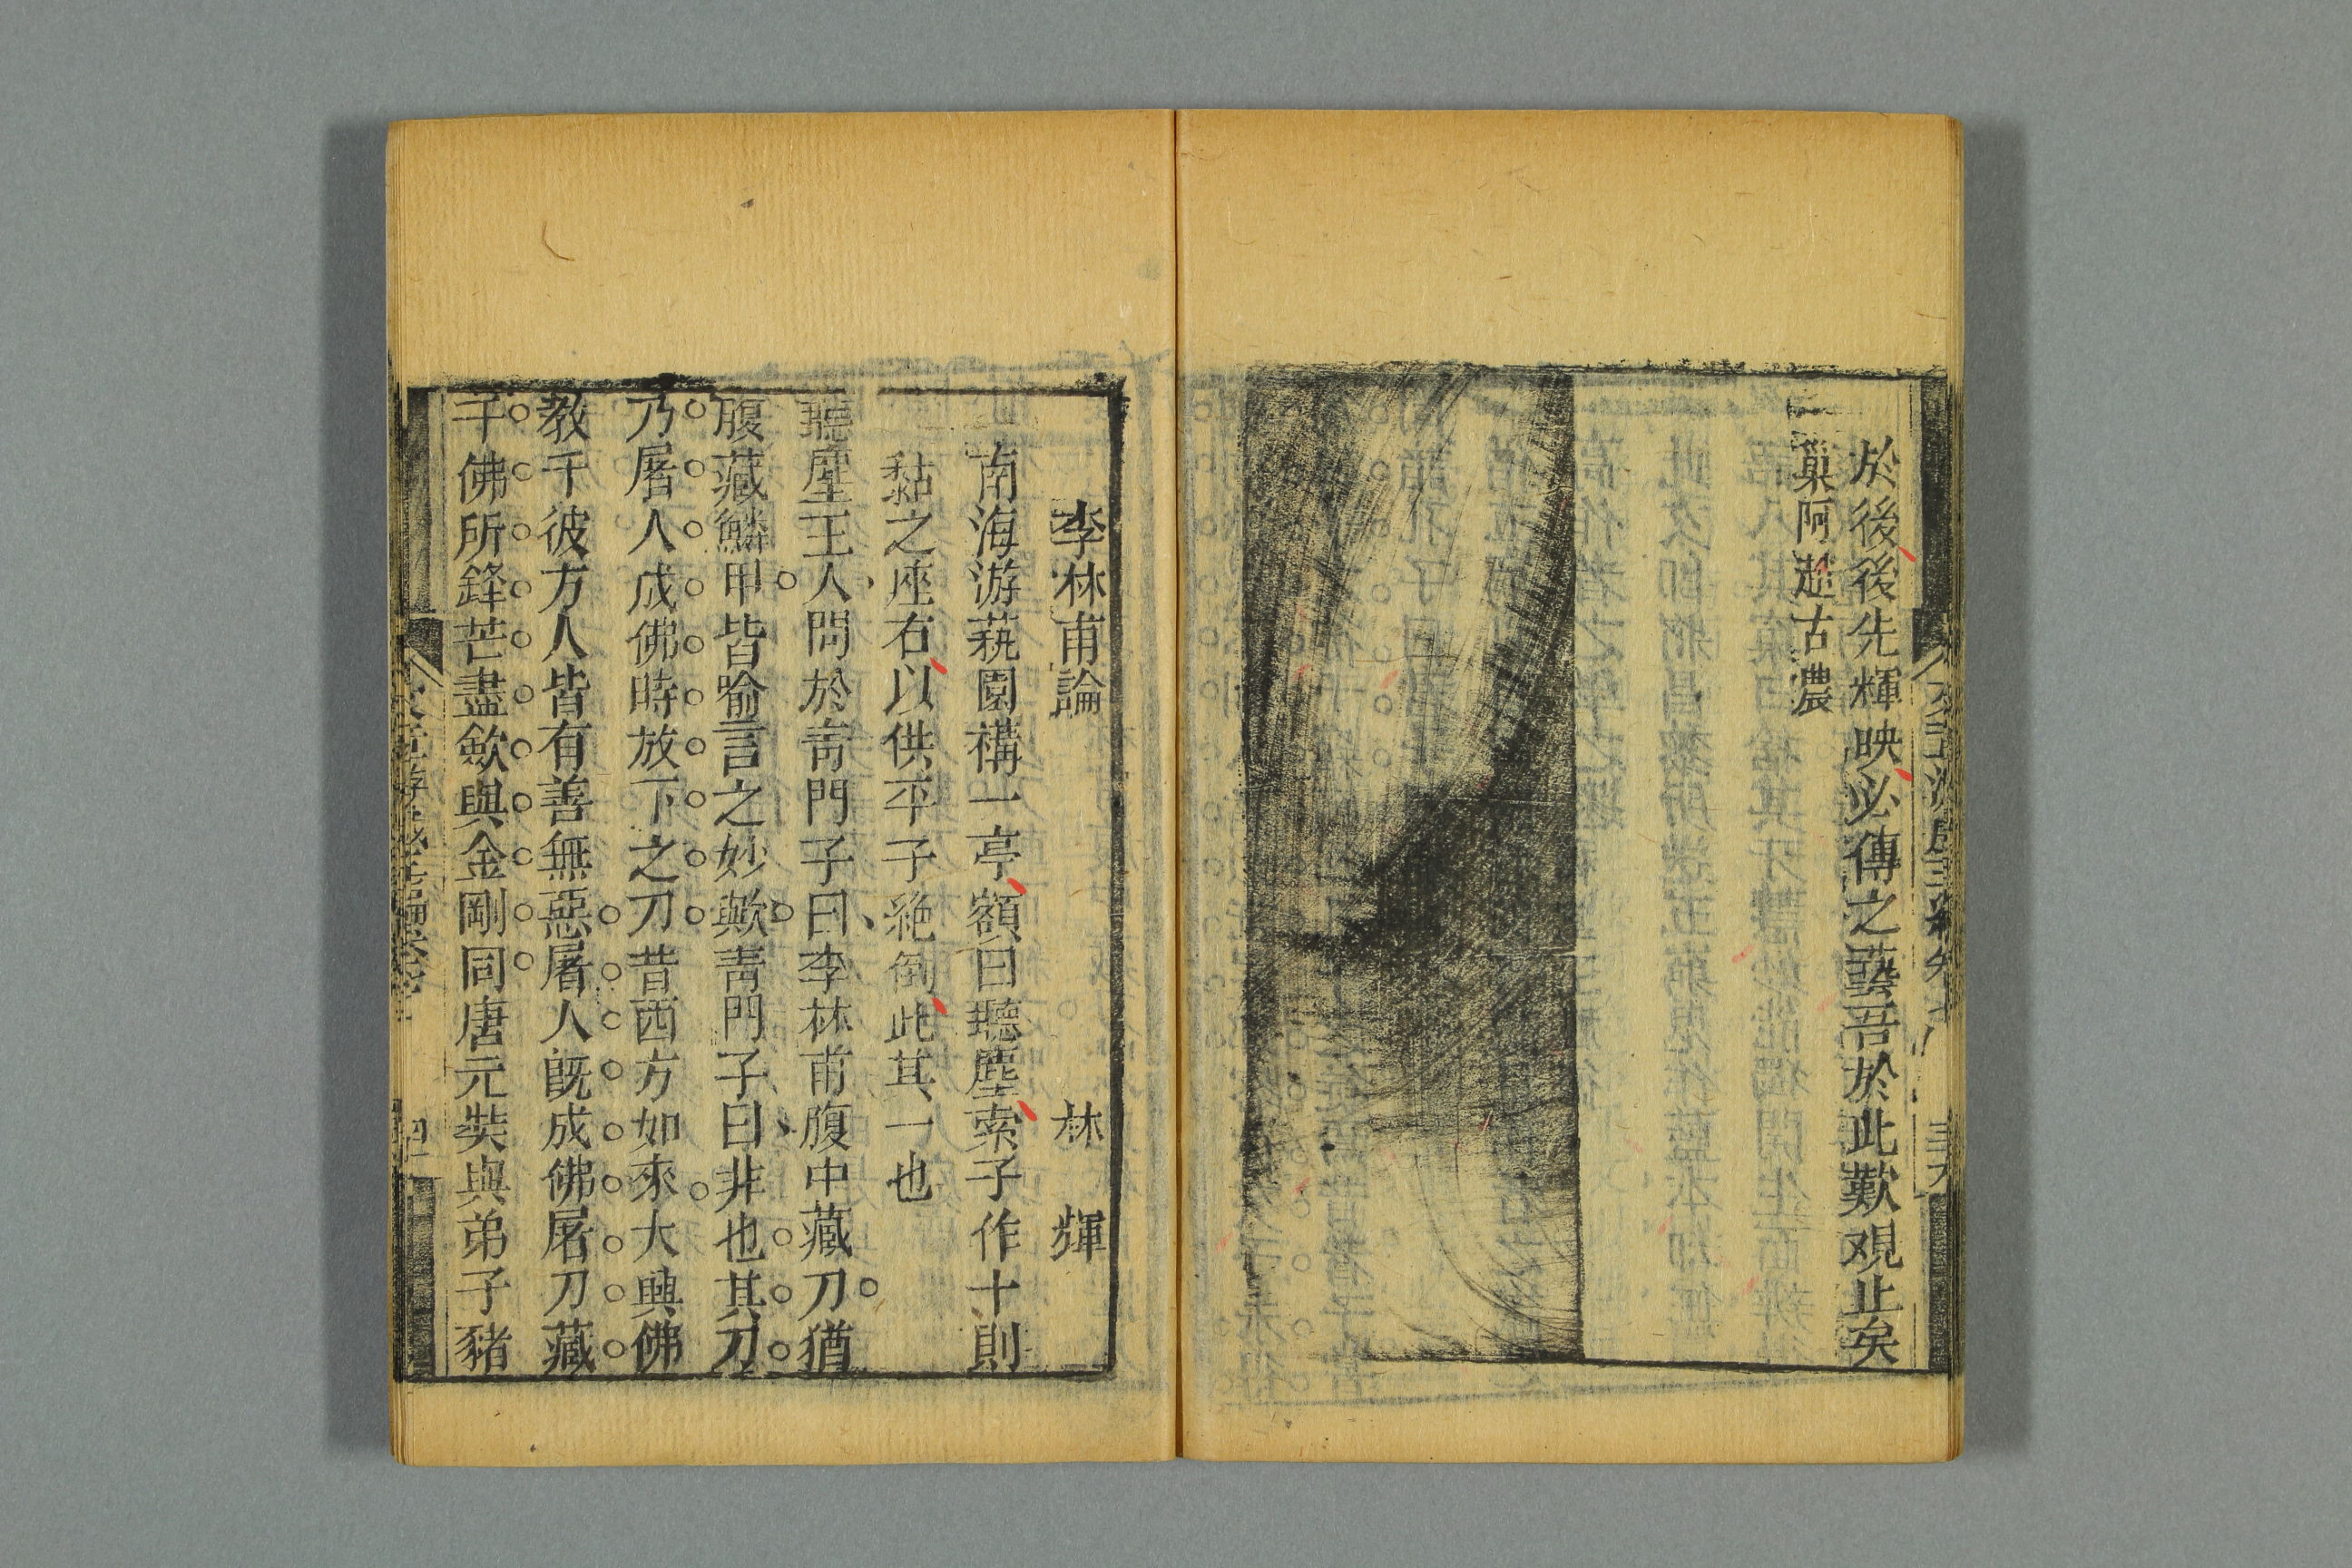 於後後先輝映必傳之藝吾於此歎觀止矣
巢阿趙古農
李林甫論 林輝
南海游蓺園構一亭額曰聽塵索子作十則
黏之座右以供平子絕倒此其一也
聽塵主人問於青門子曰李林甫腹中藏刀猶
腹藏鱗甲皆喻言之妙歟青門子曰非也其刀
乃屠人成佛時放下之刀昔西方如來大興佛
教千彼方人皆有善無惡屠人既成佛屠刀藏
千佛所鋒芒盡歛與金剛同唐元奘與弟子豬